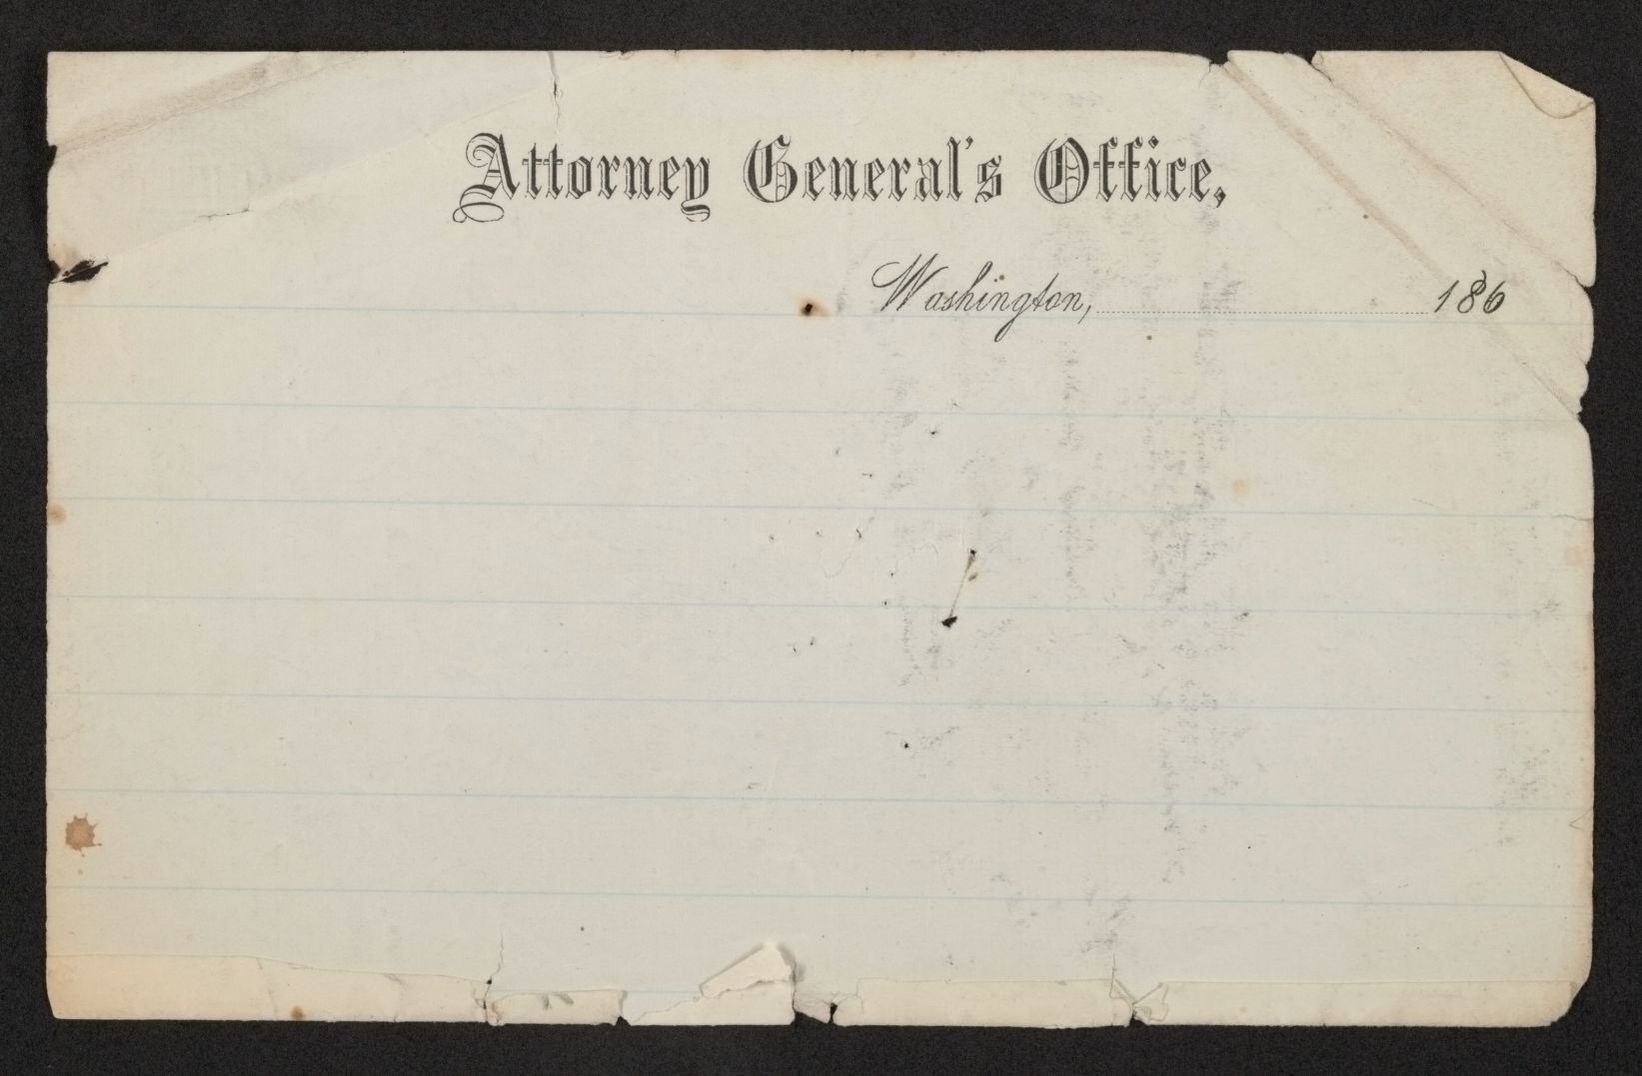 Attorney General's Office,
Washington, 186